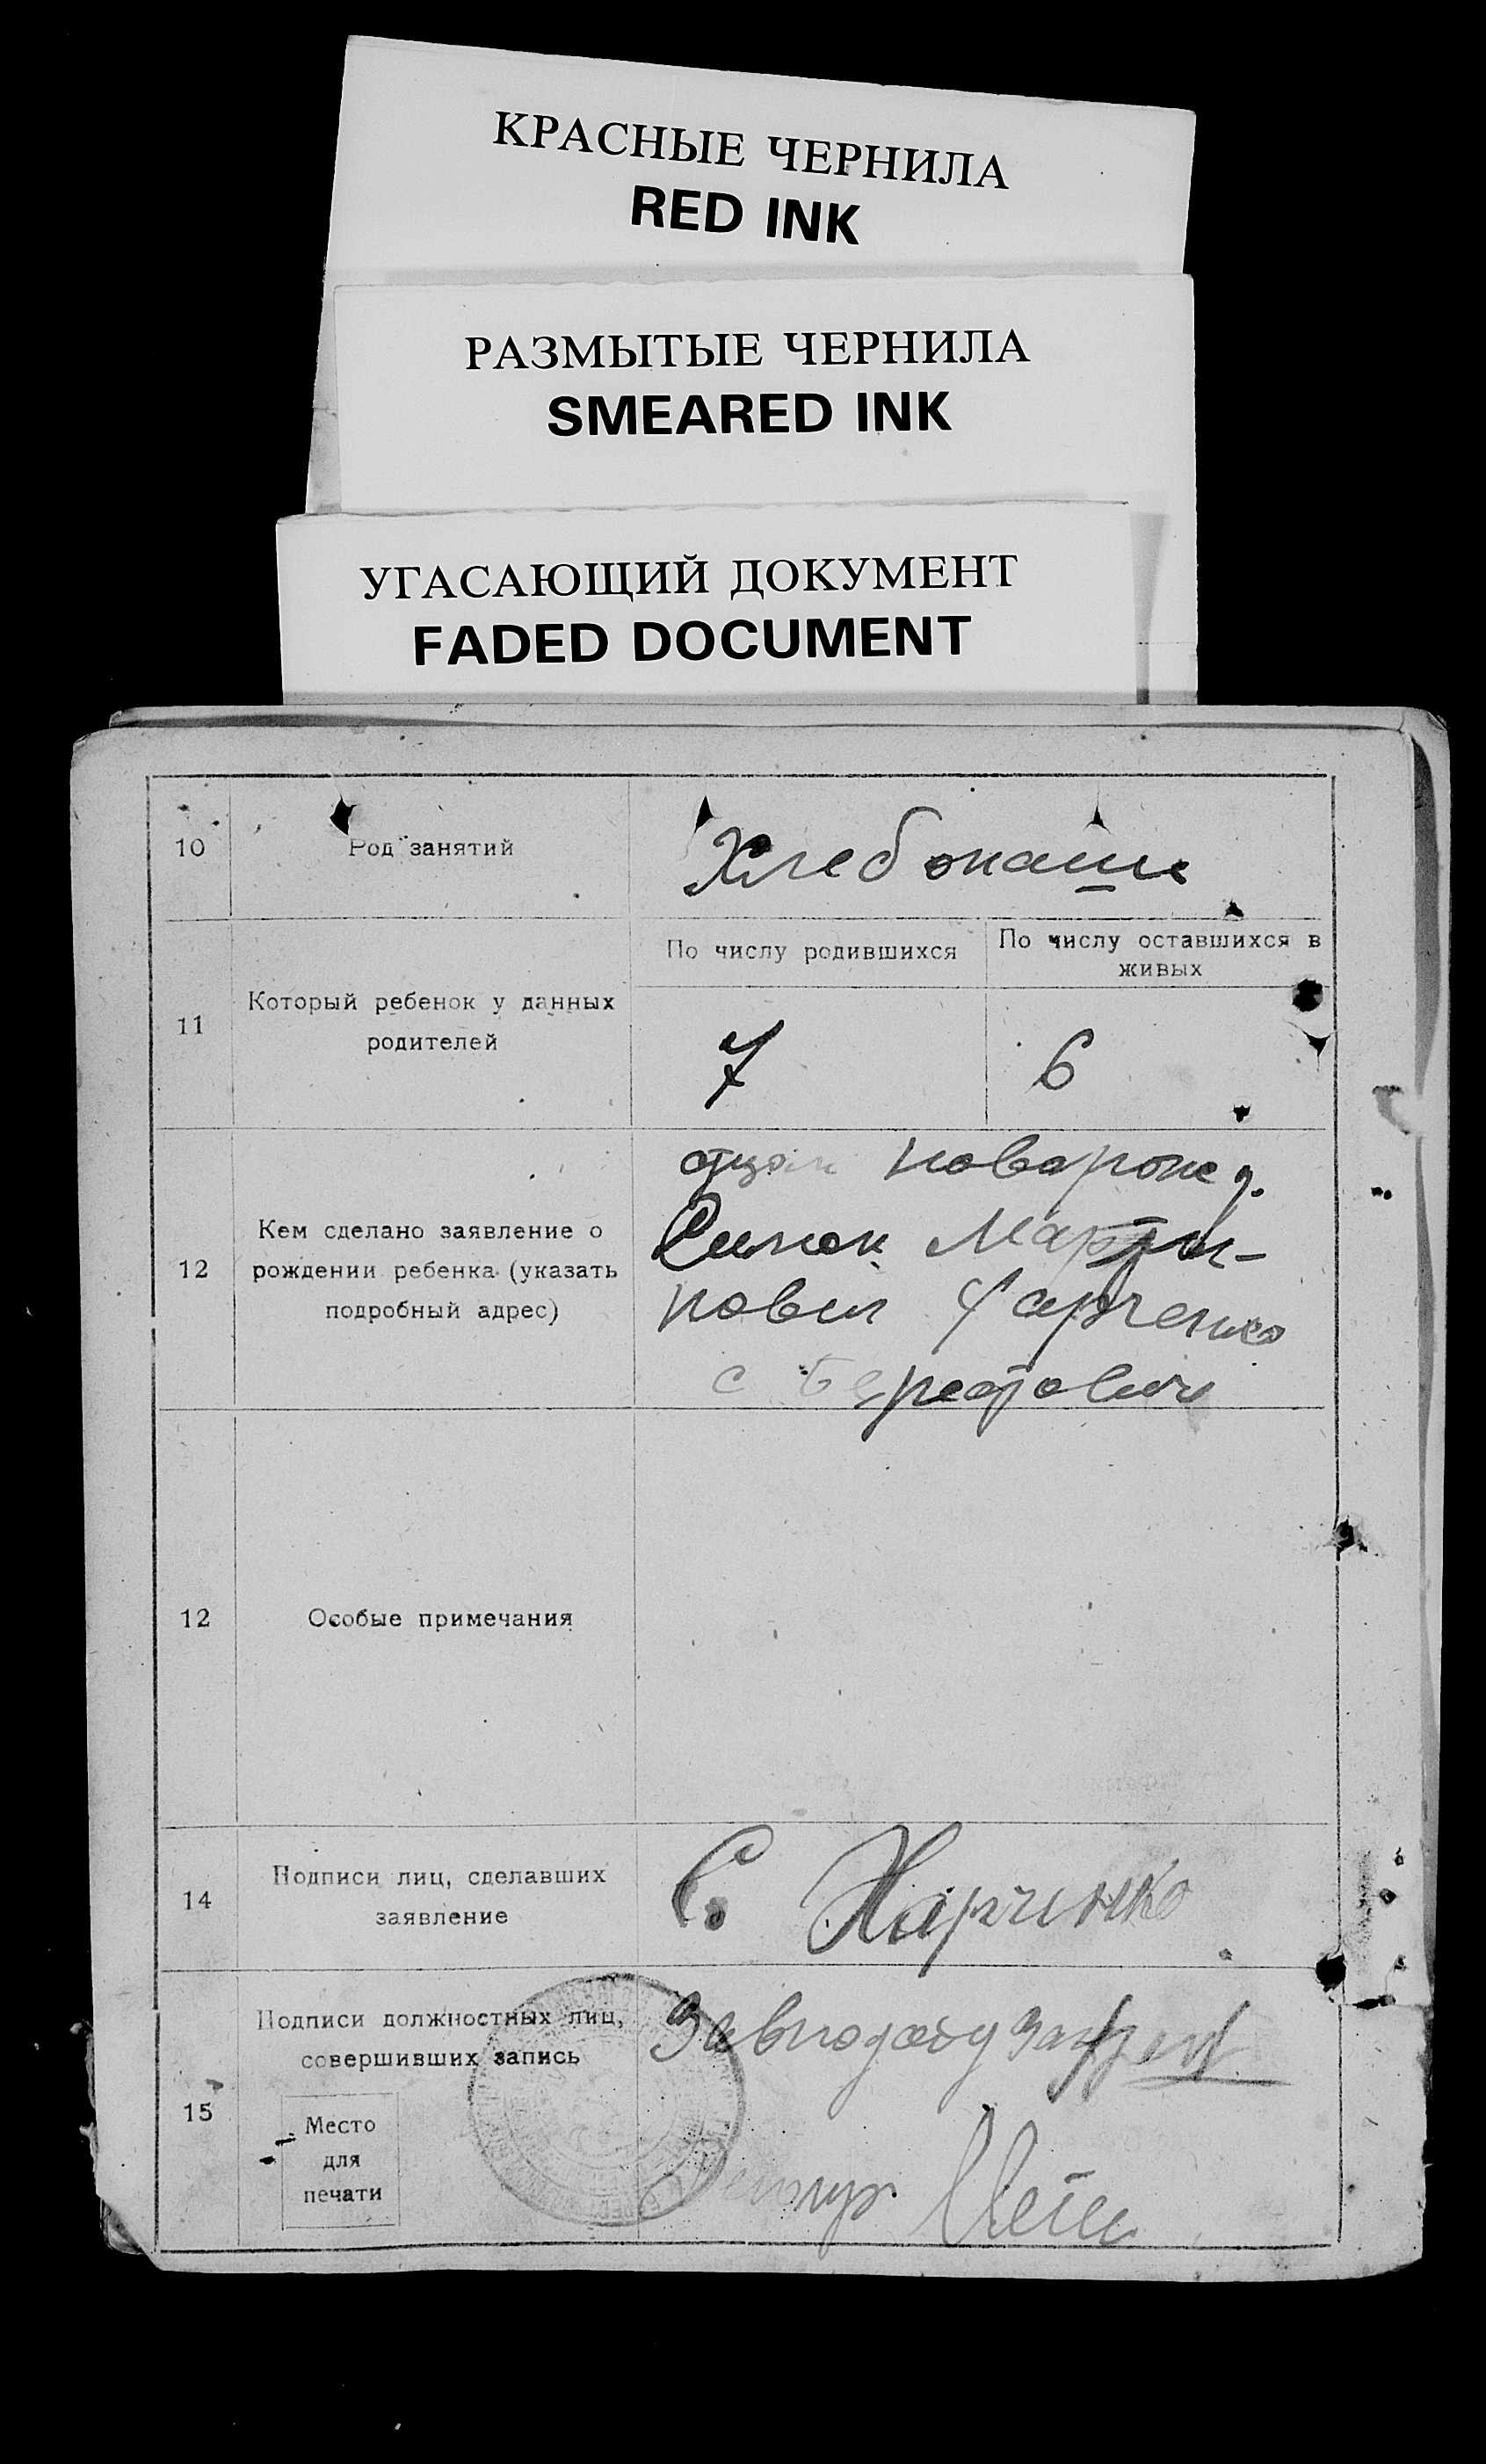 КРАСНЫЕ ЧЕРНИЛА
RED INK
РАЗМЫТЫЕ ЧЕРНИЛА
SMEARED INK
УГАСАЮЩИЙ ДОКУМЕНТ
FADED DOCUMENT
10
Род занятий
Хлебопаше
11
Который ребенок у данных
родителей
По числу родившихся
По числу оставшихся в
живых
7
6
12
Кем сделано заявление о
рождении ребенка (указать
подробный адрес)
отцом
Марты-
новил Харченко
с
12
Особые примечания
14
Подписи лиц, сделавших
заявление
С. Харчинко
15
Подписи должностных лиц,
совершивших запись
Место
для
печати